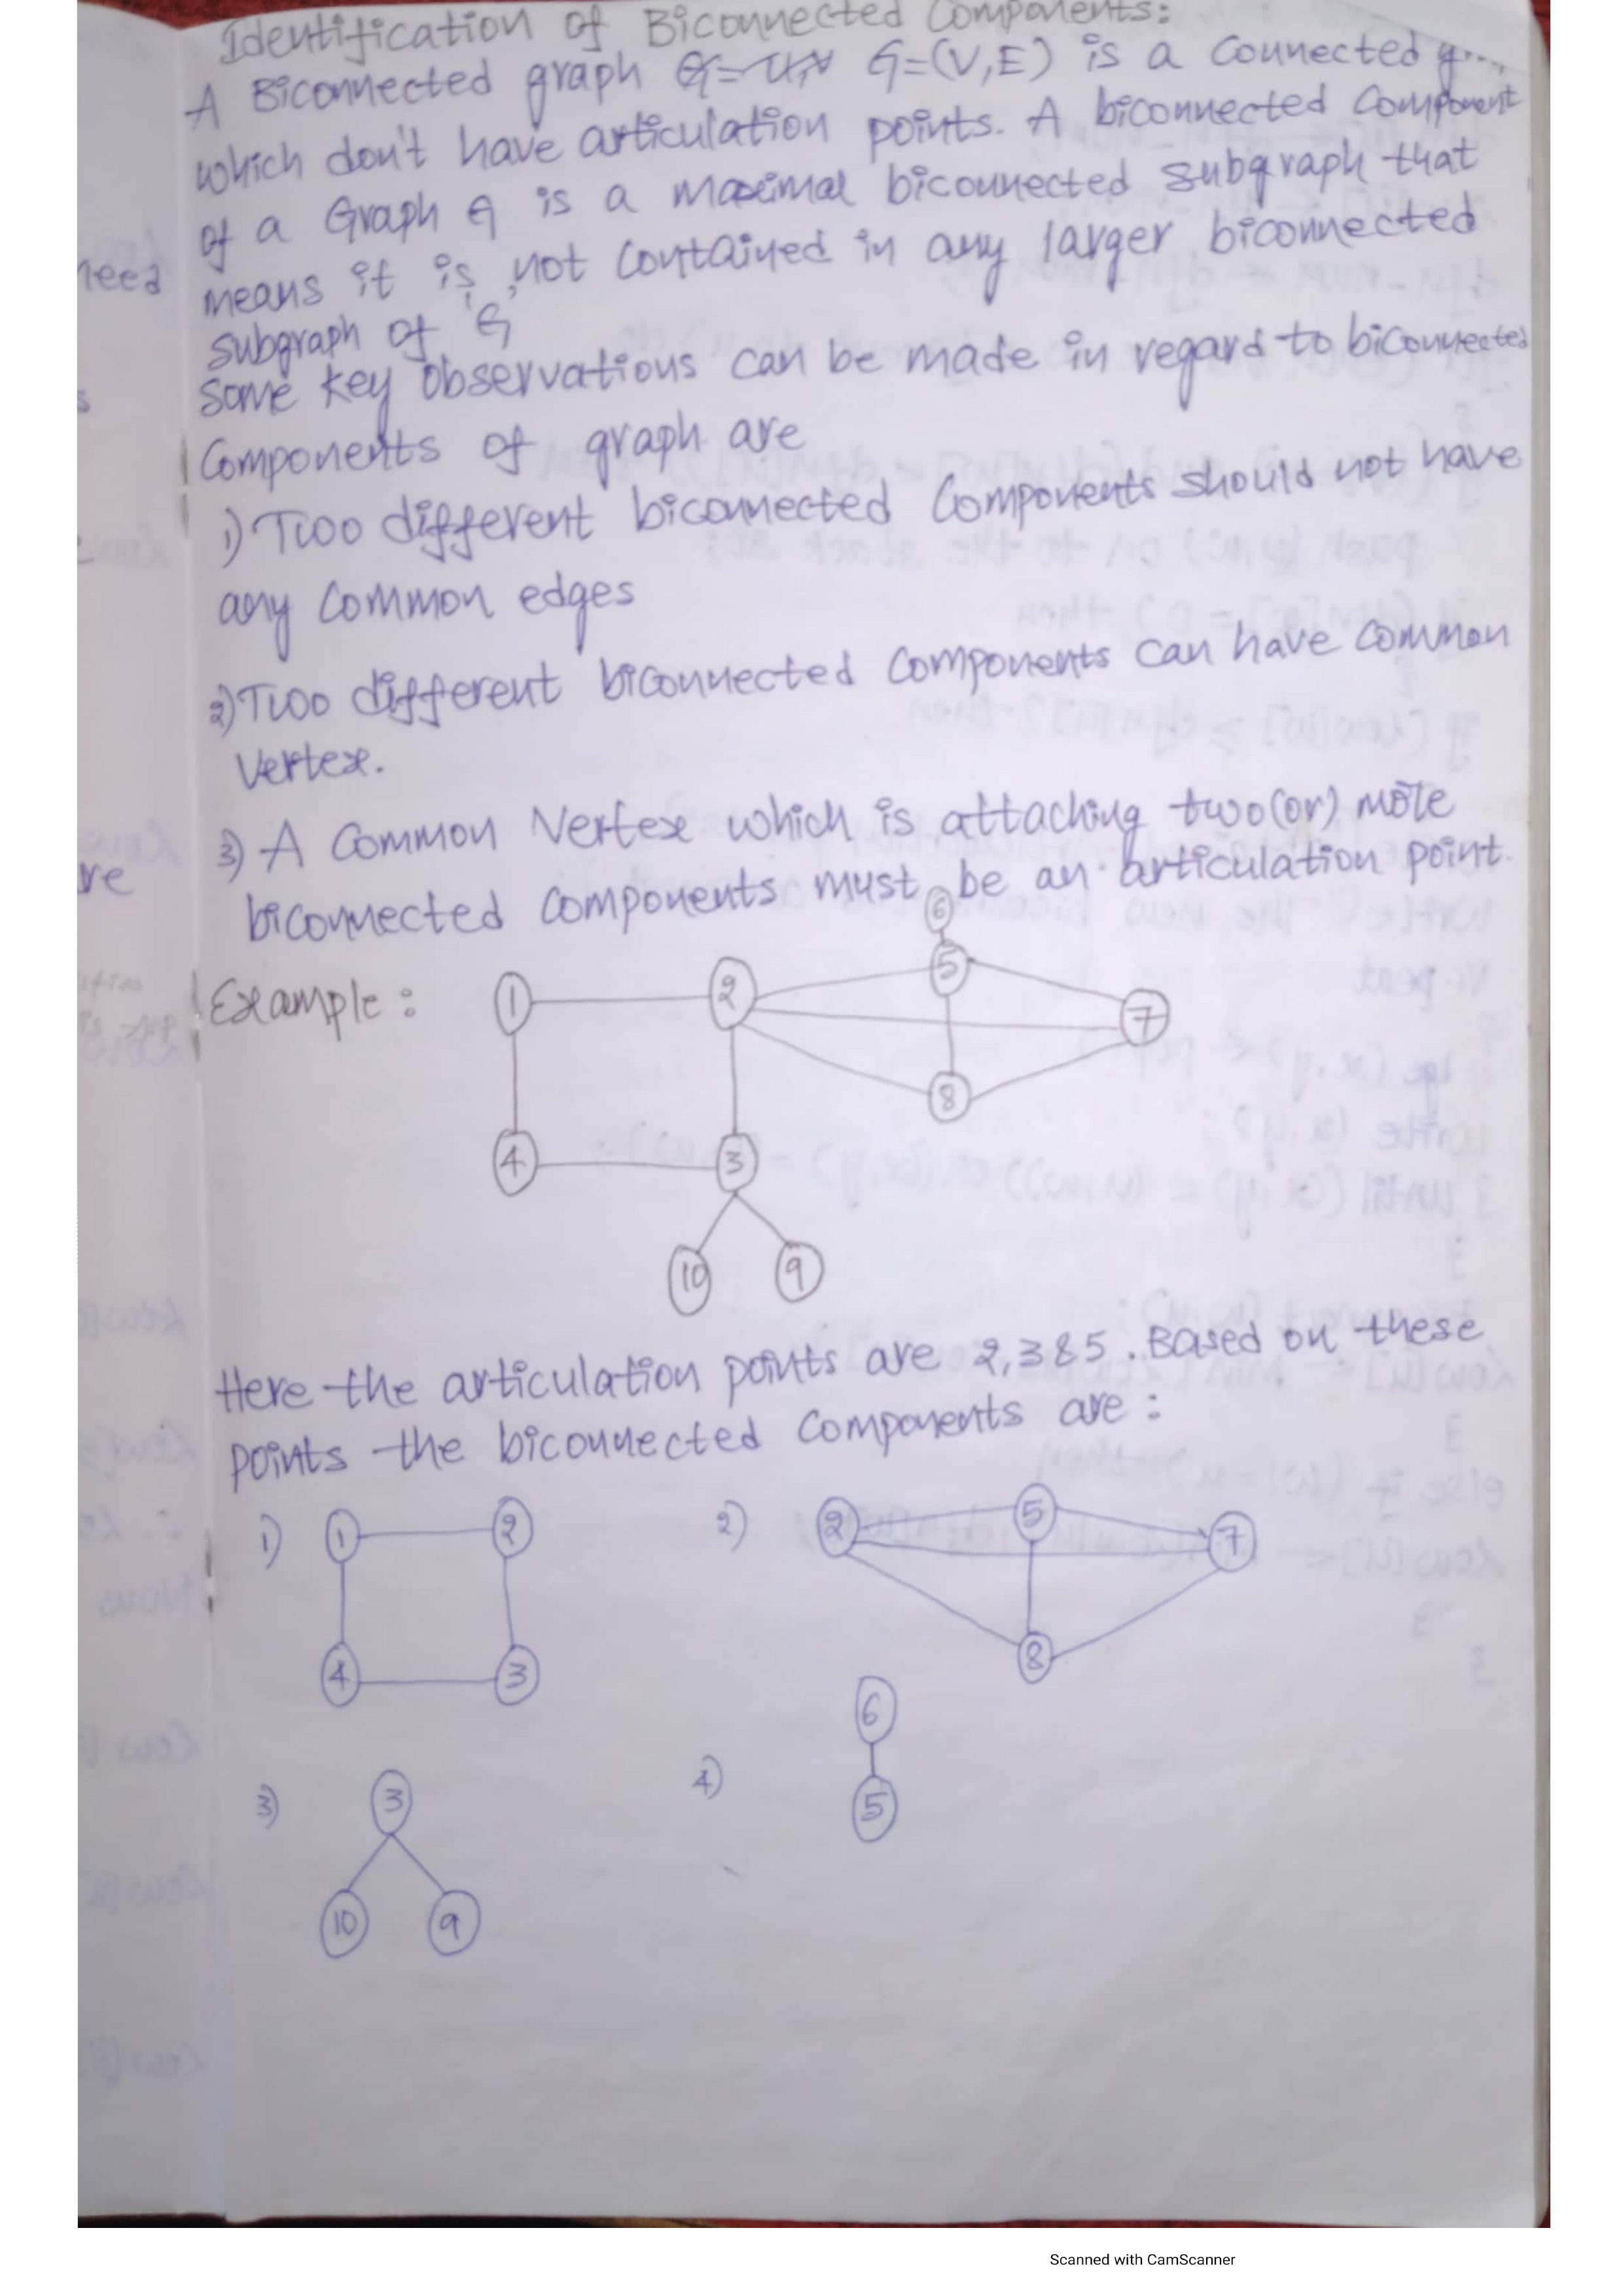 Identification of Biconnected Components:
A Biconnected graph G=(V,E) is a Connected
which don't have articulation points. A biconnected Component
of a Graph G is a maximal biconnected subgraph that
means it is not contained in any larger biconnected
need
subgraph of 'G'
Some key observations can be made in regard to biconnected
s
Components of graph are
1) Two different biconnected Components should not have
any common edges
2) Two different biconnected Components can have common
Vertex.
3) A Common Vertex which is attaching two(or) more
re
biconnected Components must be an articulation point.
6
Example:
1 2 5 7
8
4 3
10 9
Here the articulation points are 2,3&5. Based on these
points the biconnected Components are:
1) 1 2 2) 2 5 7
4 3 8
6
3) 3 4) 5
10 9
Scanned with CamScanner